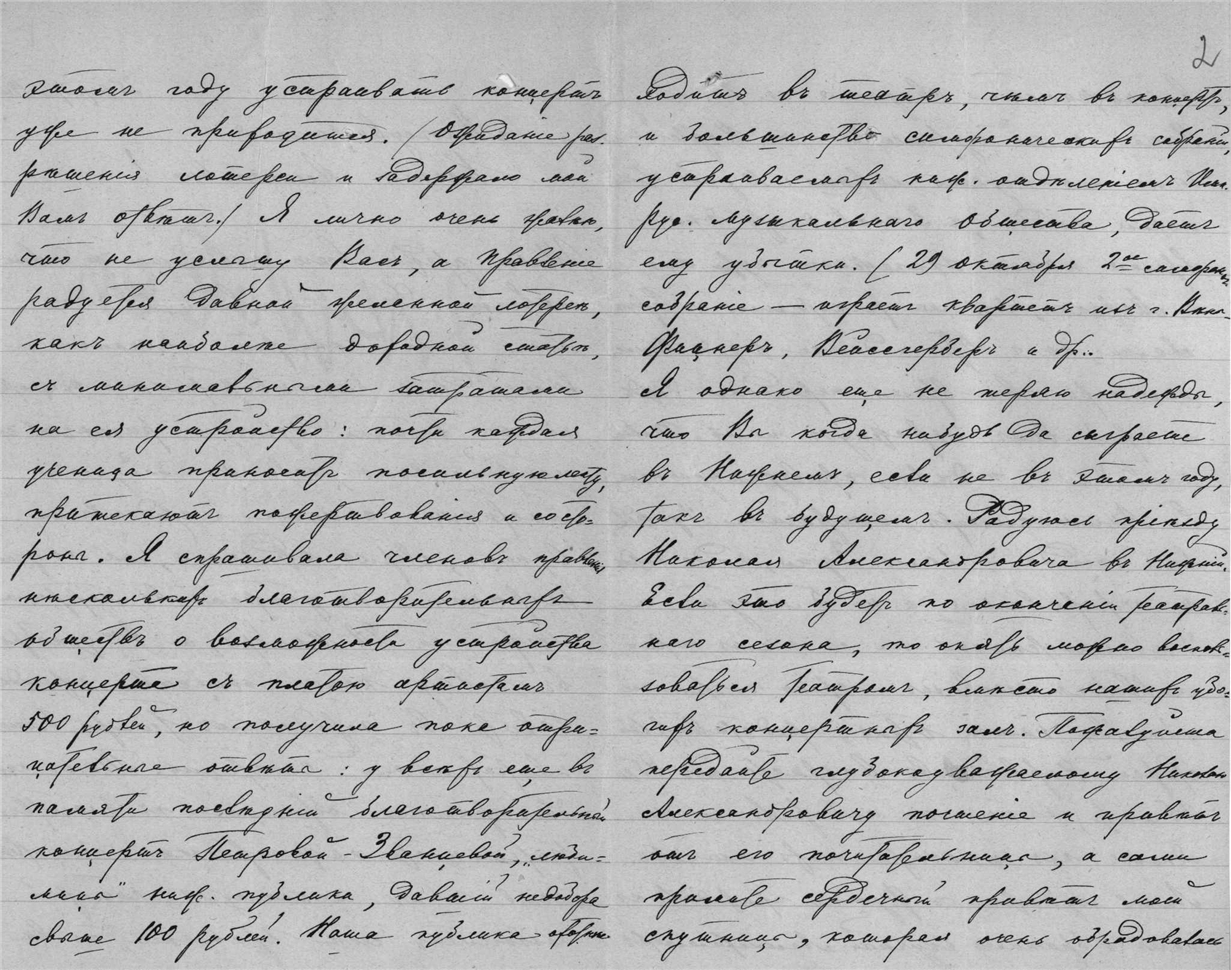 этомъ году устраивать концертъ
уже не приходится. (Ожиданіе раз-
рѣшенія лотереи и задержало мой
Вамъ отвѣтъ.) Я лично очень жалѣю,
что не услышу Васъ, а Правленіе
радуется давной лотереѣ,
какъ наиболѣе доходной статьѣ,
съ минимальными затратами
на ея устройство: почти каждая
ученица приноситъ посильную лепту,
притекаютъ пожертвованія и со сто-
роны. Я спрашивала членовъ правленія
нѣсколькихъ благотворительныхъ
обществъ о возможности устройства
концерта съ платою артистамъ
500 рублей, но получила пока отри-
цательные отвѣты: у всѣхъ еще въ
памяти послѣдній благотворительный
концертъ Петровой-Званцевой, „люби-
мицы" ниж. публики, давшій недобора
свыше 100 рублей. Наша публика охотнѣе
2
ходитъ въ театръ, чѣмъ въ концертъ,
и большинство симфоническихъ собраній,
устраиваемыхъ ниж. отдѣленіемъ Имп.
Рус. Музыкальнаго Общества, даетъ
ему убытки. (29 октября 2ое симфонич.
собраніе — играетъ квартетъ изъ г. Виль-
Фицнеръ, Вейссгерберъ и др..
Я однако еще не теряю надежды,
что Вы когда нибудь да сыграете
въ Нижнемъ, если не въ этомъ году,
такъ въ будущемъ. Радуюсь пріѣзду
Николая Александровича въ Нижній.
Если это будетъ по окончаніи театраль-
наго сезона, то опять можно восполь-
зоваться театромъ, вмѣсто нашихъ убо-
гихъ концертныхъ залъ. Пожалуйста
передайте глубокоуважаемому Николаю
Александровичу почтеніе и привѣтъ
отъ его почитательницы, а сами
примите сердечный привѣтъ моей
спутницы, которая очень обрадовалась